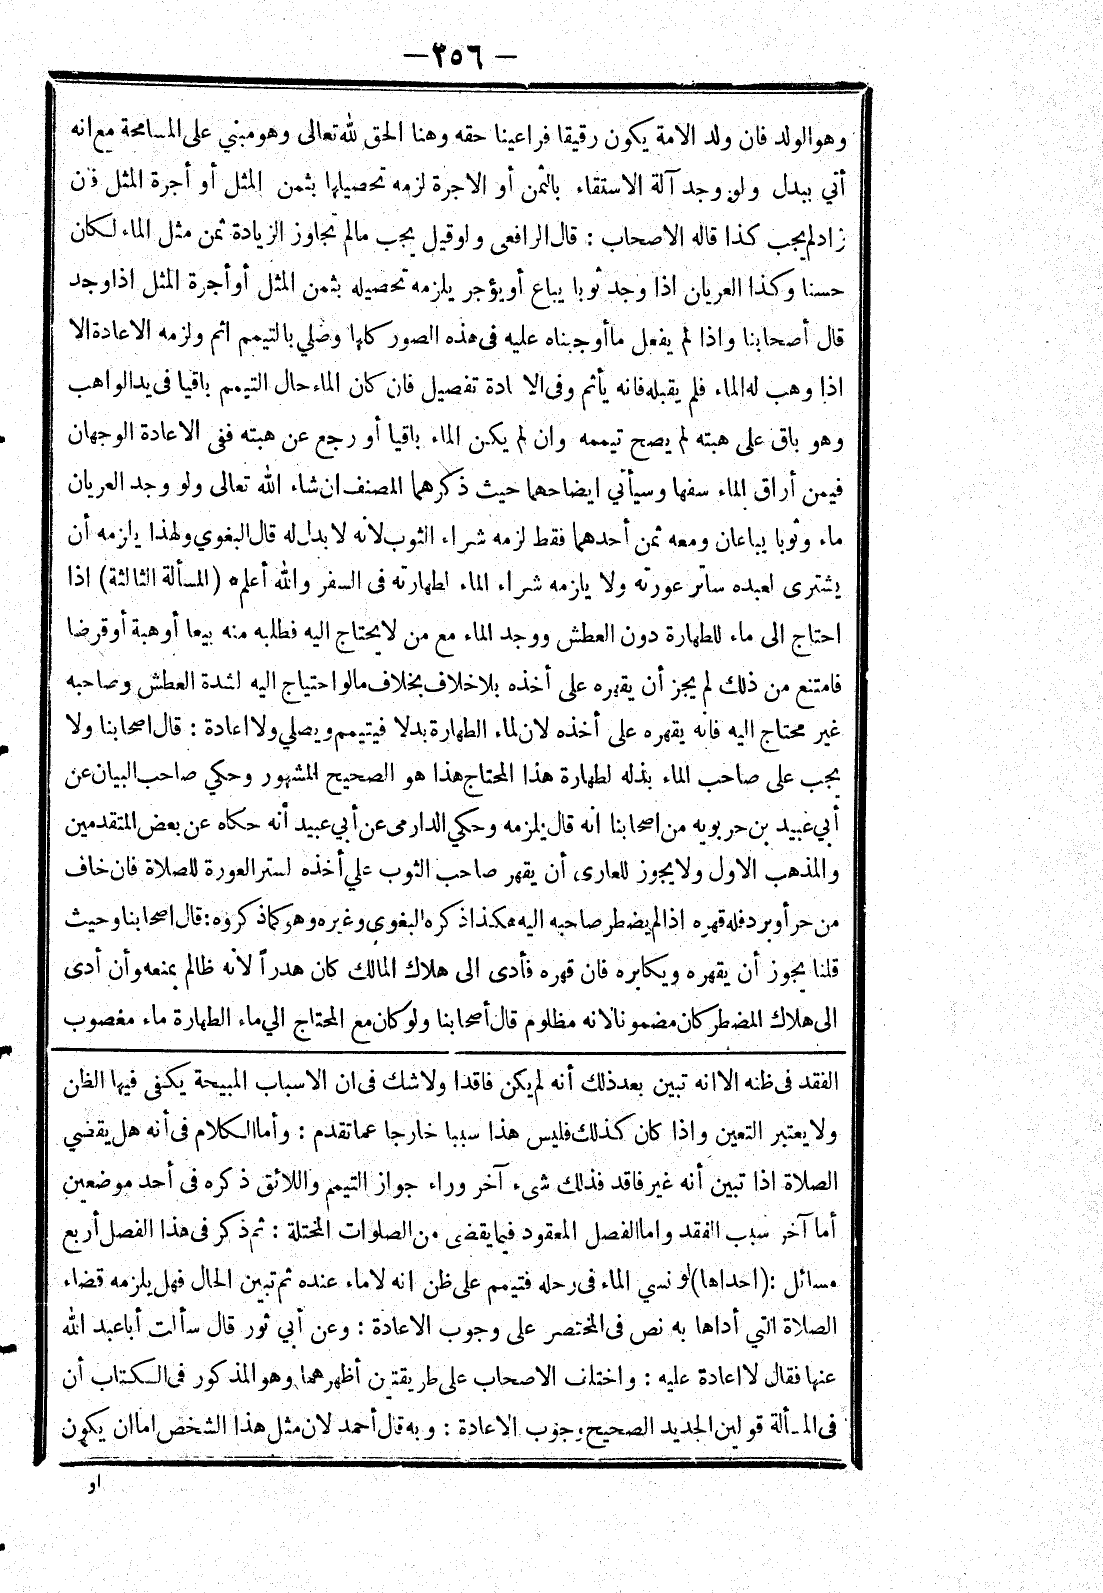 — ٢٥٦ —
وهو الولد فان ولد الامة يكون رقيقا فراعينا حقه وهنا الحق لله تعالى وهو مبني على المسامحة مع انه
أتي ببدل ولو وجد آلة الاستقاء بالثمن أو الاجرة لزمه تحصيلها بثمن المثل أو أجرة المثل فان
زاد لم يجب كذا قاله الاصحاب : قال الرافعى ولو قيل يجب مالم تجاوز الزيادة ثمن مثل الماء لكان
حسنا وكذا العريان اذا وجد ثوبا يباع أو يؤجر يلزمه تحصيله بثمن المثل أو أجرة المثل اذا وجد
قال أصحابنا واذا لم يفعل ما أوجبناه عليه فى هذه الصور كلها وصلي بالتيمم اثم ولزمه الاعادة الا
اذا وهب له الماء فلم يقبله فانه يأثم وفى الا ادة تفصيل فان كان الماء حال التيمم باقيا فى يد الواهب
وهو باق على هبته لم يصح تيممه وان لم يكن الماء باقيا أو رجع عن هبته ففى الاعادة الوجهان
فيمن أراق الماء سفها وسيأتي ايضاحهما حيث ذكرهما المصنف ان شاء الله تعالى ولو وجد العريان
ماء وثوبا يباعان ومعه ثمن أحدهما فقط لزمه شراء الثوب لانه لا بدل له قال البغوي ولهذا يلزمه أن
يشترى لعبده ساتر عورته ولا يلزمه شراء الماء لطهارته فى السفر والله أعلم ه (المسألة الثالثة) اذا
احتاج الى ماء للطهارة دون العطش ووجد الماء مع من لا يحتاج اليه فطلبه منه بيعا أو هبة أو قرضا
فامتنع من ذلك لم يجز أن يقهره على أخذه بلا خلاف بخلاف مالو احتياج اليه لشدة العطش وصاحبه
غير محتاج اليه فانه يقهره على أخذه لان لماء الطهارة بدلا فيتيمم ويصلي ولا اعادة : قال اصحابنا ولا
يجب على صاحب الماء بذله لطهارة هذا المحتاج هذا هو الصحيح المشهور وحكي صاحب البيان عن
أبي عبيد بن حربويه من اصحابنا انه قال يلزمه وحكي الدارمى عن أبي عبيد أنه حكاه عن بعض المتقدمين
والمذهب الاول ولا يجوز للعارى أن يقهر صاحب الثوب علي أخذه لستر العورة للصلاة فان خاف
من حر أو برد فله قهره اذا لم يضطر صاحبه اليه هكذا ذكره البغوي وغيره وهو كما ذكروه : قال اصحابنا وحيث
قلنا يجوز أن يقهره ويكابره فان قهره فأدى الى هلاك المالك كان هدراً لانه ظالم بمنعه وأن أدى
الى هلاك المضطر كان مضمونا لانه مظلوم قال أصحابنا ولو كان مع المحتاج الي ماء الطهارة ماء مغصوب
الفقد فى ظنه الا انه تبين بعد ذلك أنه لم يكن فاقدا ولا شك فى ان الاسباب المبيحة يكفى فيها الظن
ولا يعتبر التعين واذا كان كذلك فليس هذا سببا خارجا عما تقدم : وأما الكلام فى أنه هل يقضي
الصلاة اذا تبين أنه غير فاقد فذلك شىء آخر وراء جواز التيمم واللائق ذكره فى أحد موضعين
أما آخر سبب الفقد واما الفصل المعقود فيما يقضى من الصلوات المختلة : ثم ذكر فى هذا الفصل أربع
مسائل : (احداها) لو نسي الماء فى رحله فتيمم على ظن انه لا ماء عنده ثم تبين الحال فهل يلزمه قضاء
الصلاة التي أداها به نص فى المختصر على وجوب الاعادة : وعن أبي ثور قال سألت أبا عبد الله
عنها فقال لا اعادة عليه : واختلف الاصحاب على طريقتين أظهرهما وهو المذكور فى الكتاب أن
فى المسألة قولين الجديد الصحيح وجوب الاعادة : وبه قال أحمد لان مثل هذا الشخص اما ان يكون
او